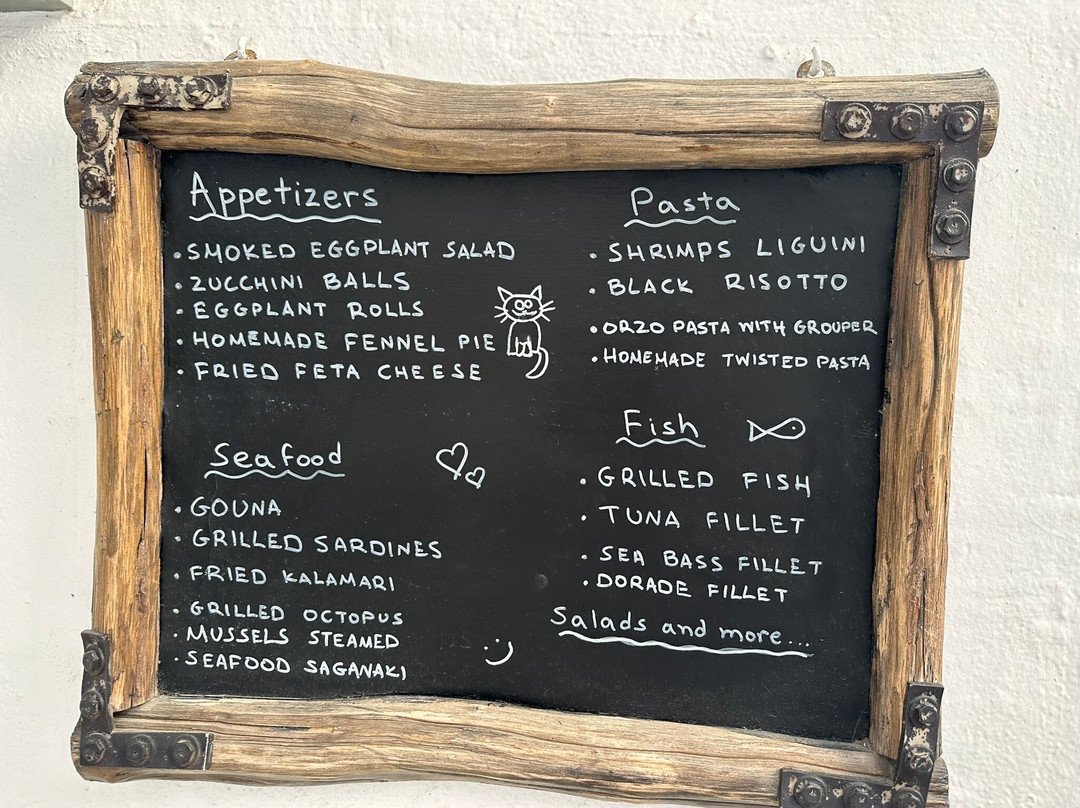 Appetizers
• SMOKED EGGPLANT SALAD
• ZUCCHINI BALLS
• EGGPLANT ROLLS
• HOMEMADE FENNEL PIE
• FRIED FETA CHEESE
Seafood
• GOUNA
• GRILLED SARDINES
• FRIED KALAMARI
• GRILLED OCTOPUS
• MUSSELS STEAMED
• SEAFOOD SAGANAKI
Pasta
• SHRIMPS LIGUINI
• BLACK RISOTTO
• ORZO PASTA WITH GROUPER
• HOMEMADE TWISTED PASTA
Fish
• GRILLED FISH
• TUNA FILLET
• SEA BASS FILLET
• DORADE FILLET
Salads and more...